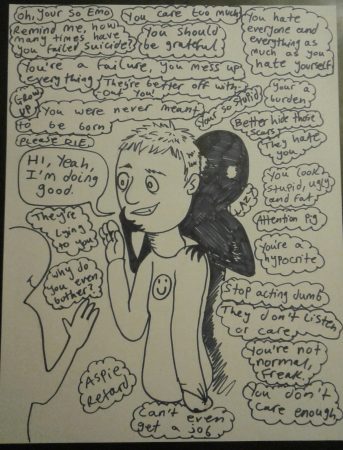 Oh, your so Emo
You care too much
You hate
everyone and
everything as
much as you
hate yourself
Remind me, how
many times have
you failed suicide?
You should
be grateful
You're a failure, you mess up
everything
They're better off with-
out you!
Your so
stupid
Your a
burden
Grow
up
You were never meant
to be born
Better hide those
scars
They hate
you
PLEASE DIE.
Hi, Yeah,
I'm doing
good.
You look
stupid, ugly
and fat
Attention Pig
They're
lying
to you
You're a
hypocrite
Why do
you even
bother?
Stop acting dumb
They don't listen
or care
You're not
normal,
Freak.
Aspie
Retard
You don't
care enough
Can't even
get a job